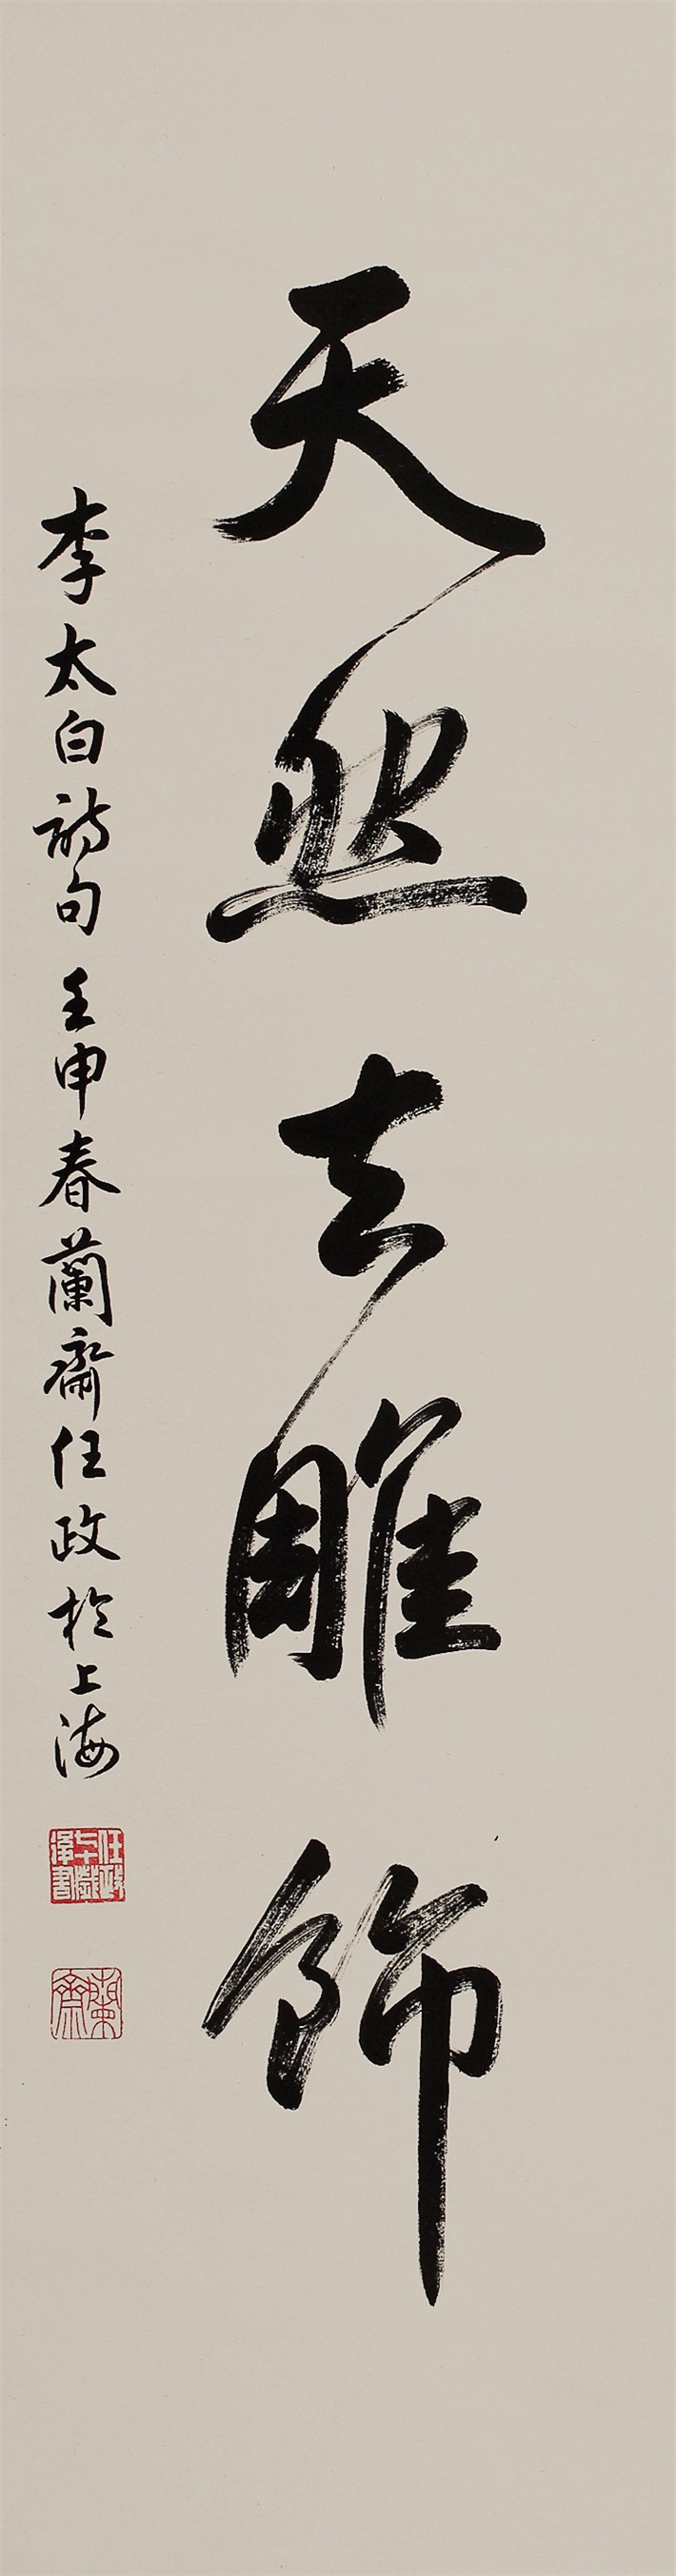 天然去雕飾
李太白詩句 壬申春蘭齋任政於上海
任政七十歲後書
蘭齋